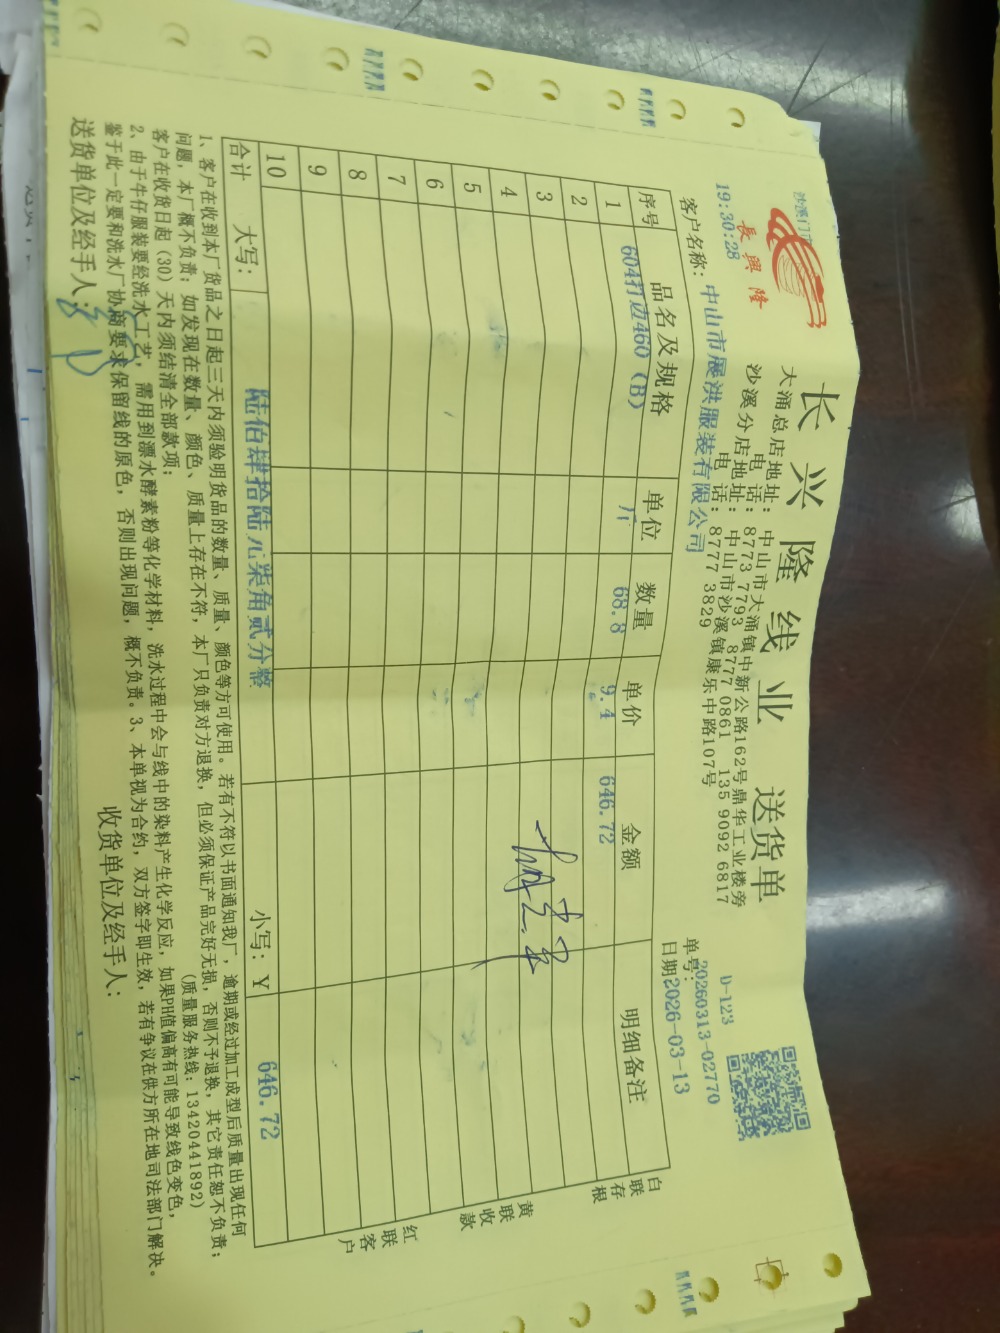 沙溪门市
長興隆
19:30:28
长兴隆线业 送货单
大涌总店地址：中山市大涌镇中新公路162号鼎华工业楼旁
电 话：8773 7793 8777 0861 135 9092 6817
沙溪分店地址：中山市沙溪镇康乐中路107号
电 话：8777 3829
D-123
单号：20260313-02770
客户名称：中山市展洪服装有限公司
日期2026-03-13
序号 品名及规格 单位 数量 单价 金额 明细备注
1 604打边460（B） 斤 68.8 9.4 646.72
2
3
4
5
6
7
8
9
10
合计 大写：陆佰肆拾陆元柒角贰分整 小写：Y 646.72
白联存根
黄联收款
红联客户
1、客户在收到本厂货品之日起三天内须验明货品的数量、质量、颜色等方可使用。若有不符以书面通知我厂，逾期或经过加工成型后质量出现任何
问题，本厂概不负责；如发现在数量、颜色、质量上存在不符，本厂只负责对方退换，但必须保证产品完好无损，否则不予退换，其它责任恕不负责；
客户在收货日起（30）天内须结清全部款项； （质量服务热线：13420441892）
2、由于牛仔服装要经洗水工艺，需用到漂水酵素粉等化学材料，洗水过程中会与线中的染料产生化学反应，如果PH值偏高有可能导致线色变色，
鉴于此一定要和洗水厂协商要求保留线的原色，否则出现问题，概不负责。3、本单视为合约，双方签字即生效，若有争议在供方所在地司法部门解决。
送货单位及经手人： 收货单位及经手人：